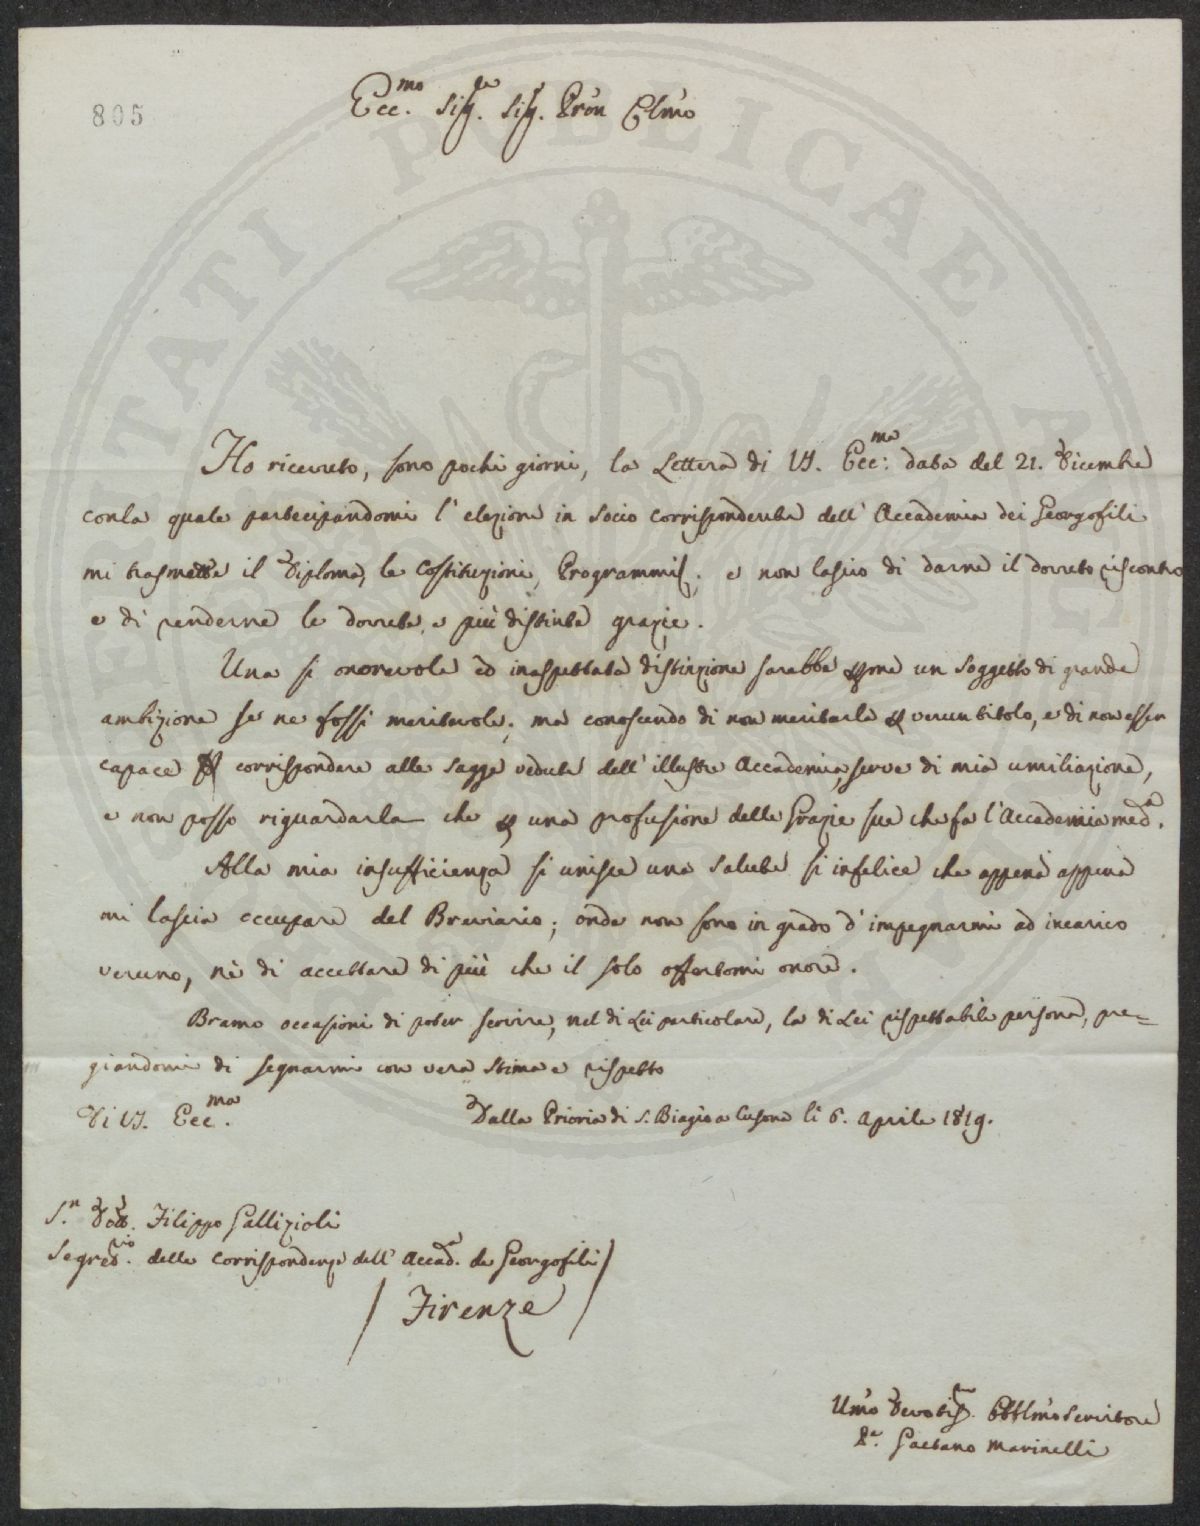 805
Ecc.mo Sig.re Sig. Pron Colmo
Ho ricevuto, sono pochi giorni, la Lettera di VS. Ecc:ma data del 21. Dicembre
con la quale partecipandomi l'elezione in Socio corrispondente dell'Accademia dei Georgofili
mi trasmette il Diploma, le Costituzioni, Programmi; e non lascio di darne il dovuto riscontro
e di renderne le dovute, e più distinte grazie.
Una sì onorevole ed inaspettata distinzione sarebbe porre un Soggetto di grande
ambizione se ne fossi meritevole; ma conoscendo di non meritarla p verun titolo, e di non esser
capace corrispondere alle Sagge vedute dell'illustre Accademia, serve di mia umiliazione,
e non posso riguardarla che p una profusione delle Grazie sue che fa l'Accademia med.a
Alla mia insufficienza si unisce una Salute sì infelice che appena appena
mi lascia occupare del Breviario; onde non sono in grado d'impegnarmi ad incarico
veruno, nè di accettare di più che il solo offertomi onore.
Bramo occasioni di poter servire, nel di Lei particolare, la di Lei rispettabile persona, pre=
giandomi di segnarmi con vera Stima e rispetto
Di VS. Ecc.ma Dalla Prioria di S. Biagio a Cusona li 6. Aprile 1819.
S.r Dott. Filippo Gallizioli
Segret.rio delle Corrispondenze dell'Accad.a de Georgofili
/ Firenze /
Umo Devotis.mo Obblmo Servitore
P.e Gaetano Marinelli
PUBLICAE